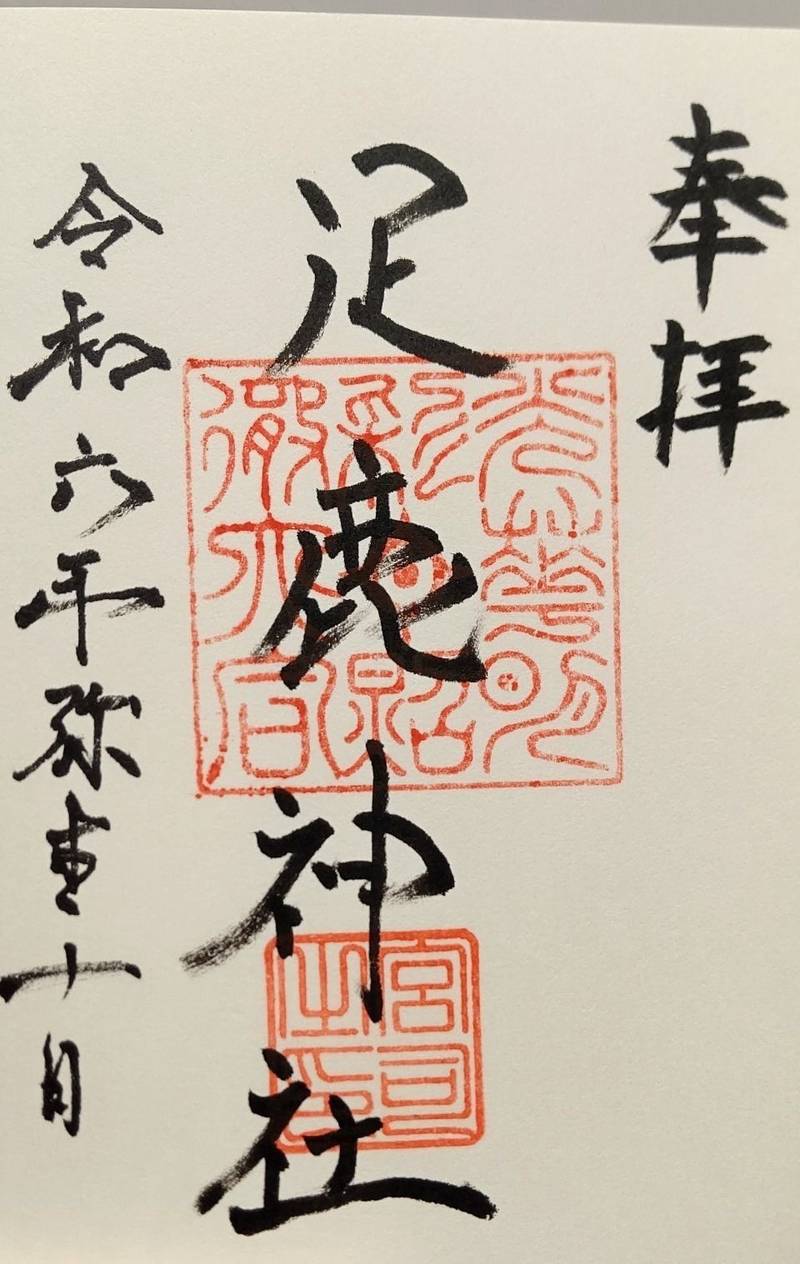 奉拝
足鹿神社
宮司之印
令和六年弥生十日